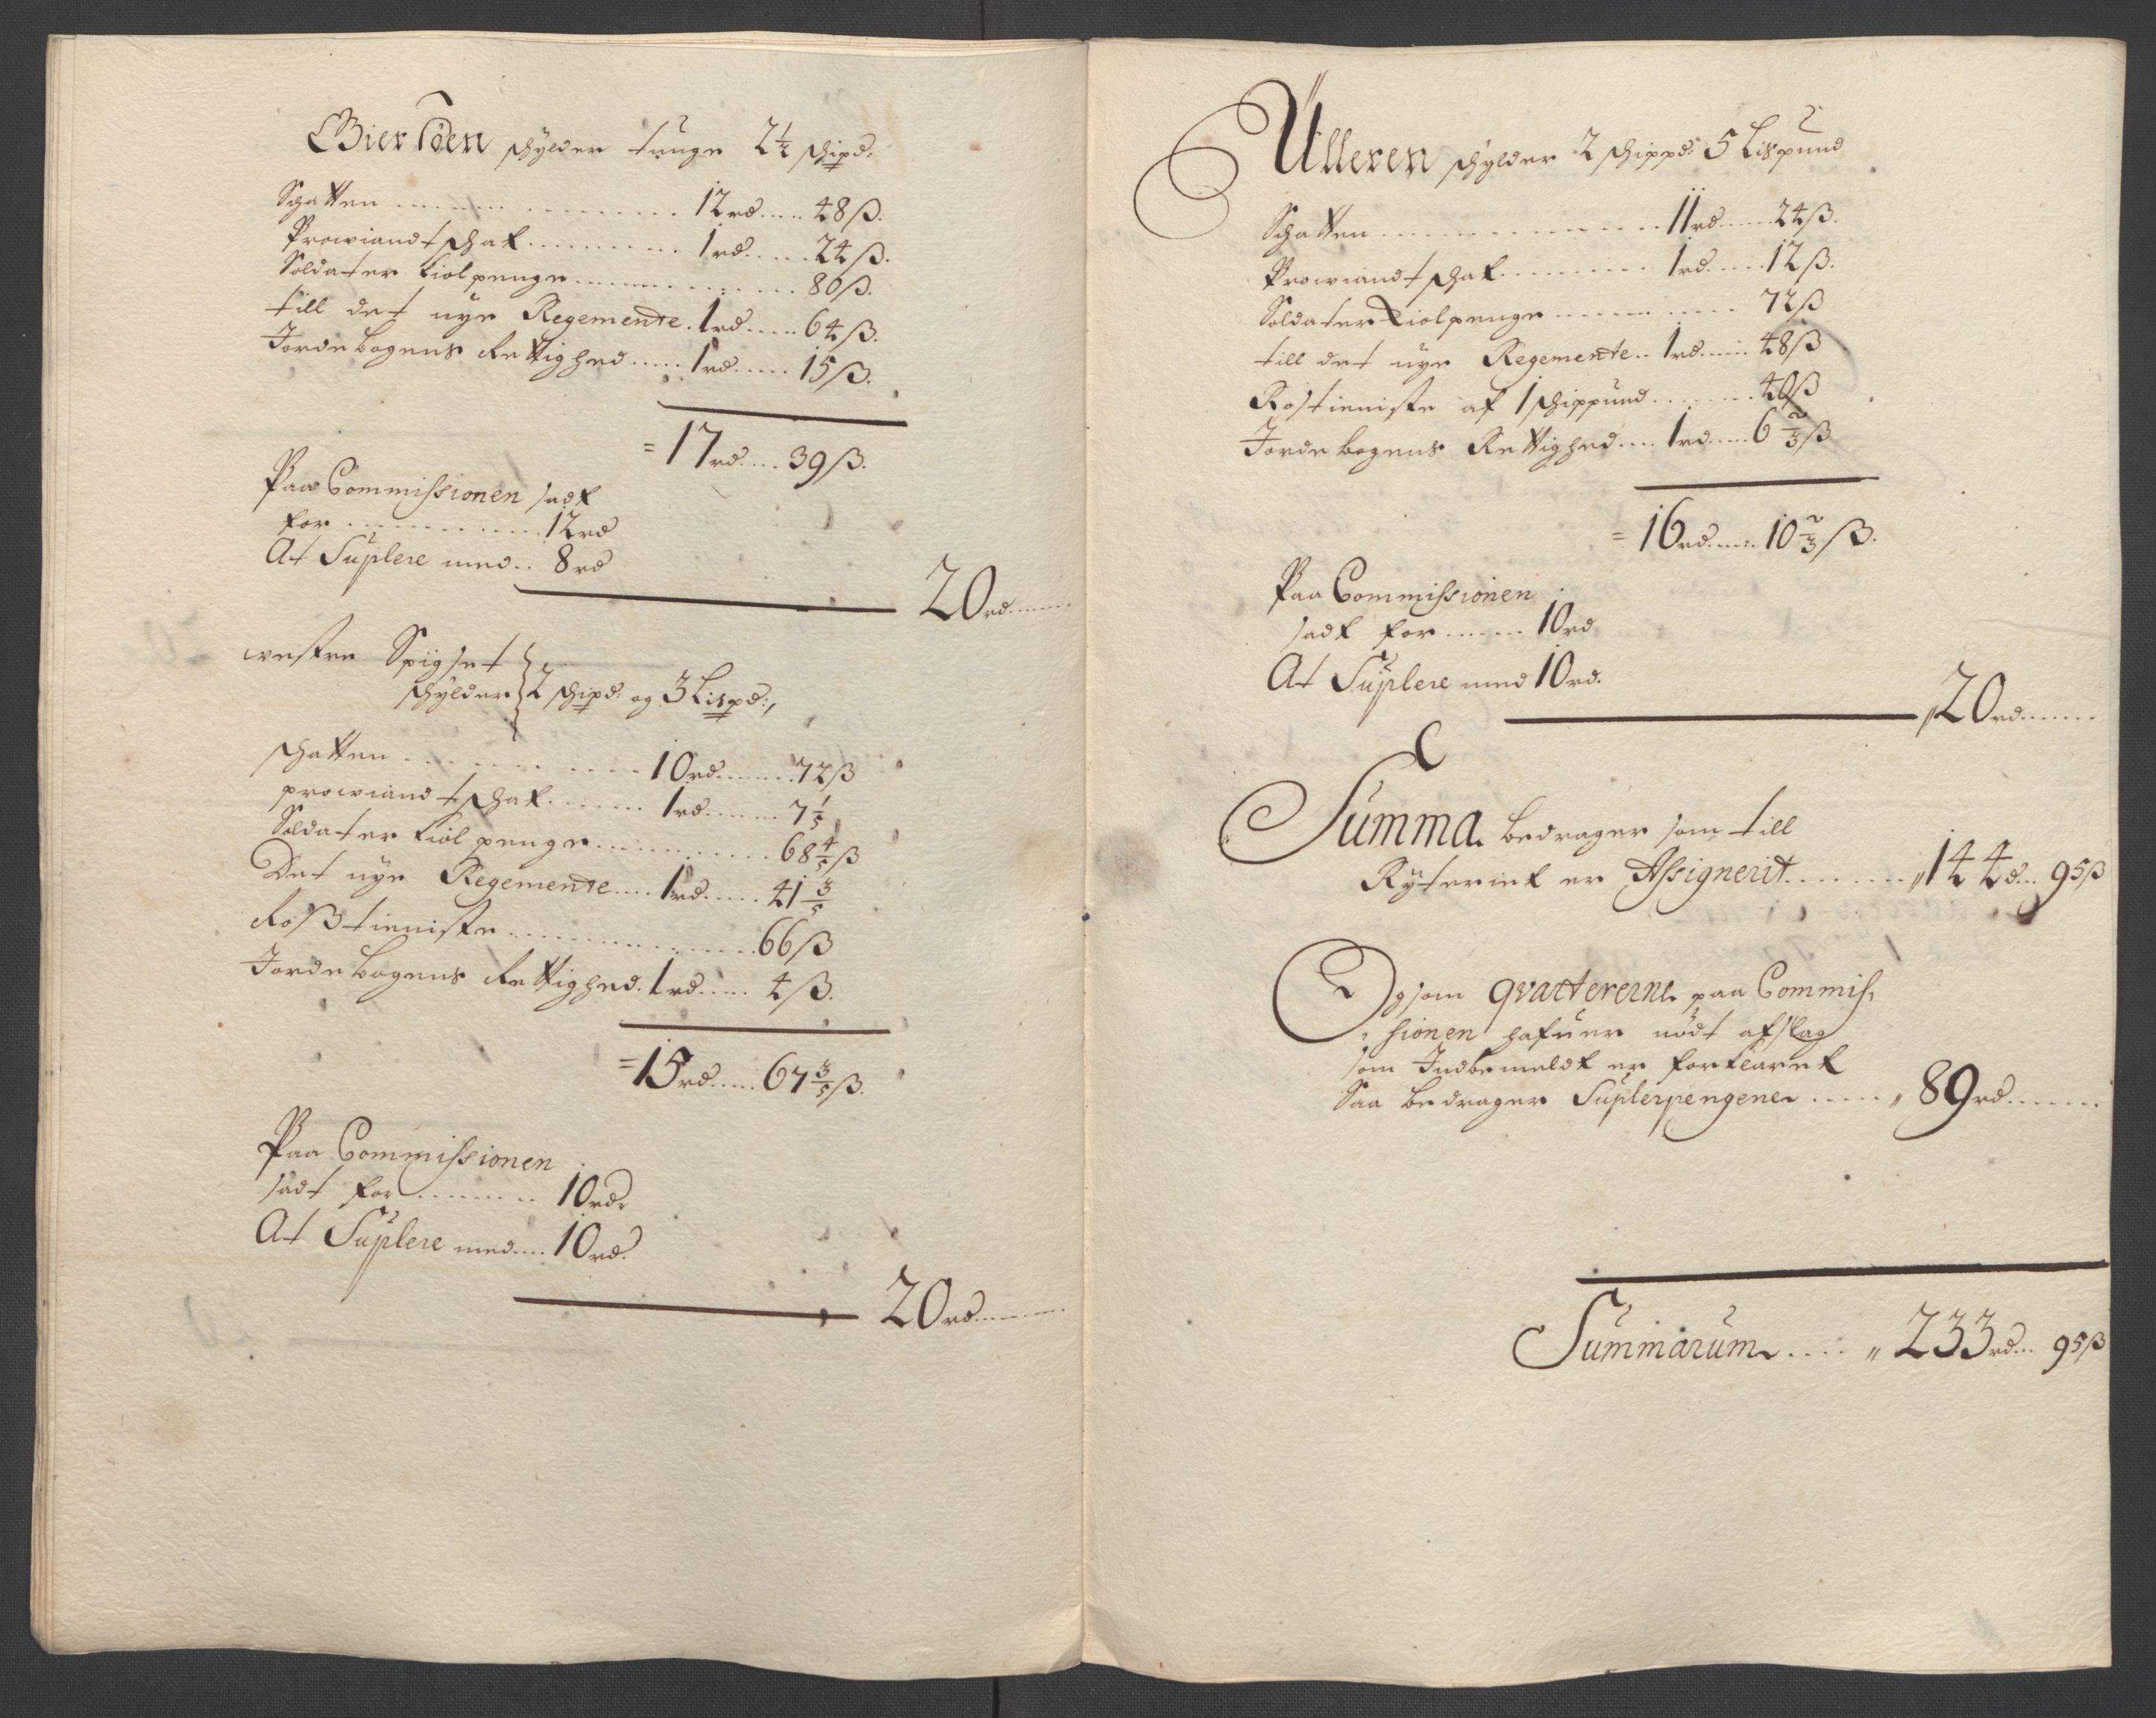 Gierløen schylder tunge 2½ schipd:
Schatten ........ 12 rd .... 48 ß.
Prowiandtschat ........ 1 rd .... 24 ß.
Soldater Kiolpenge ........ 80 ß.
till det nye Regemente . 1 rd .... 64 ß.
Jordebogens Rettighed .... 1 rd .... 15 ß.
= 17 rd .... 39 ß.
Paa Commissionen sadt
for ........ 12 rd
At Suplere med .. 8 rd
20 rd ....
westre Spigset
schylder 2 schipd: og 3 Lispd:,
schatten ........ 10 rd .... 72 ß
prowiandtschat ........ 1 rd .... 7 1/5
Soldater Kiolpenge ........ 68 4/5 ß
Det nye Regemente .... 1 rd .... 41 3/5
Roßtieniste ........ 66 ß
Jordebogens Rettighed . 1 rd .... 4 ß.
= 15 rd .... 67 3/5 ß.
Paa Commissionen
sadt for ........ 10 rd.
At Suplere med .... 10 rd.
20 rd ....
Ulleren schylder 2 schippd: 5 Lispund
Schatten ........ 11 rd .... 24 ß.
Prowiandtschat ........ 1 rd .... 12 ß.
Soldater Kiolpenge ........ 72 ß
till det nye Regemente .. 1 rd .... 48 ß
Rostieniste af 1 schippund ........ 40 ß
Jordebogens Rettighed .... 1 rd .... 6 2/3 ß
= 16 rd .... 10 2/3 ß.
Paa Commissionen
sadt for ...... 10 rd
At Suplere med 10 rd.
20 rd ....
Summa bedrager som till
Ryteriet er Assignerit ........ 144 d .. 95 ß
Og som qvartererne paa Commis-
sionen hafuer nødt afslag
som Indbemeldt er forklaret
Saa bedrager Suplerpengene ..... 89 rd ....
Summarum .... 233 rd .. 95 ß